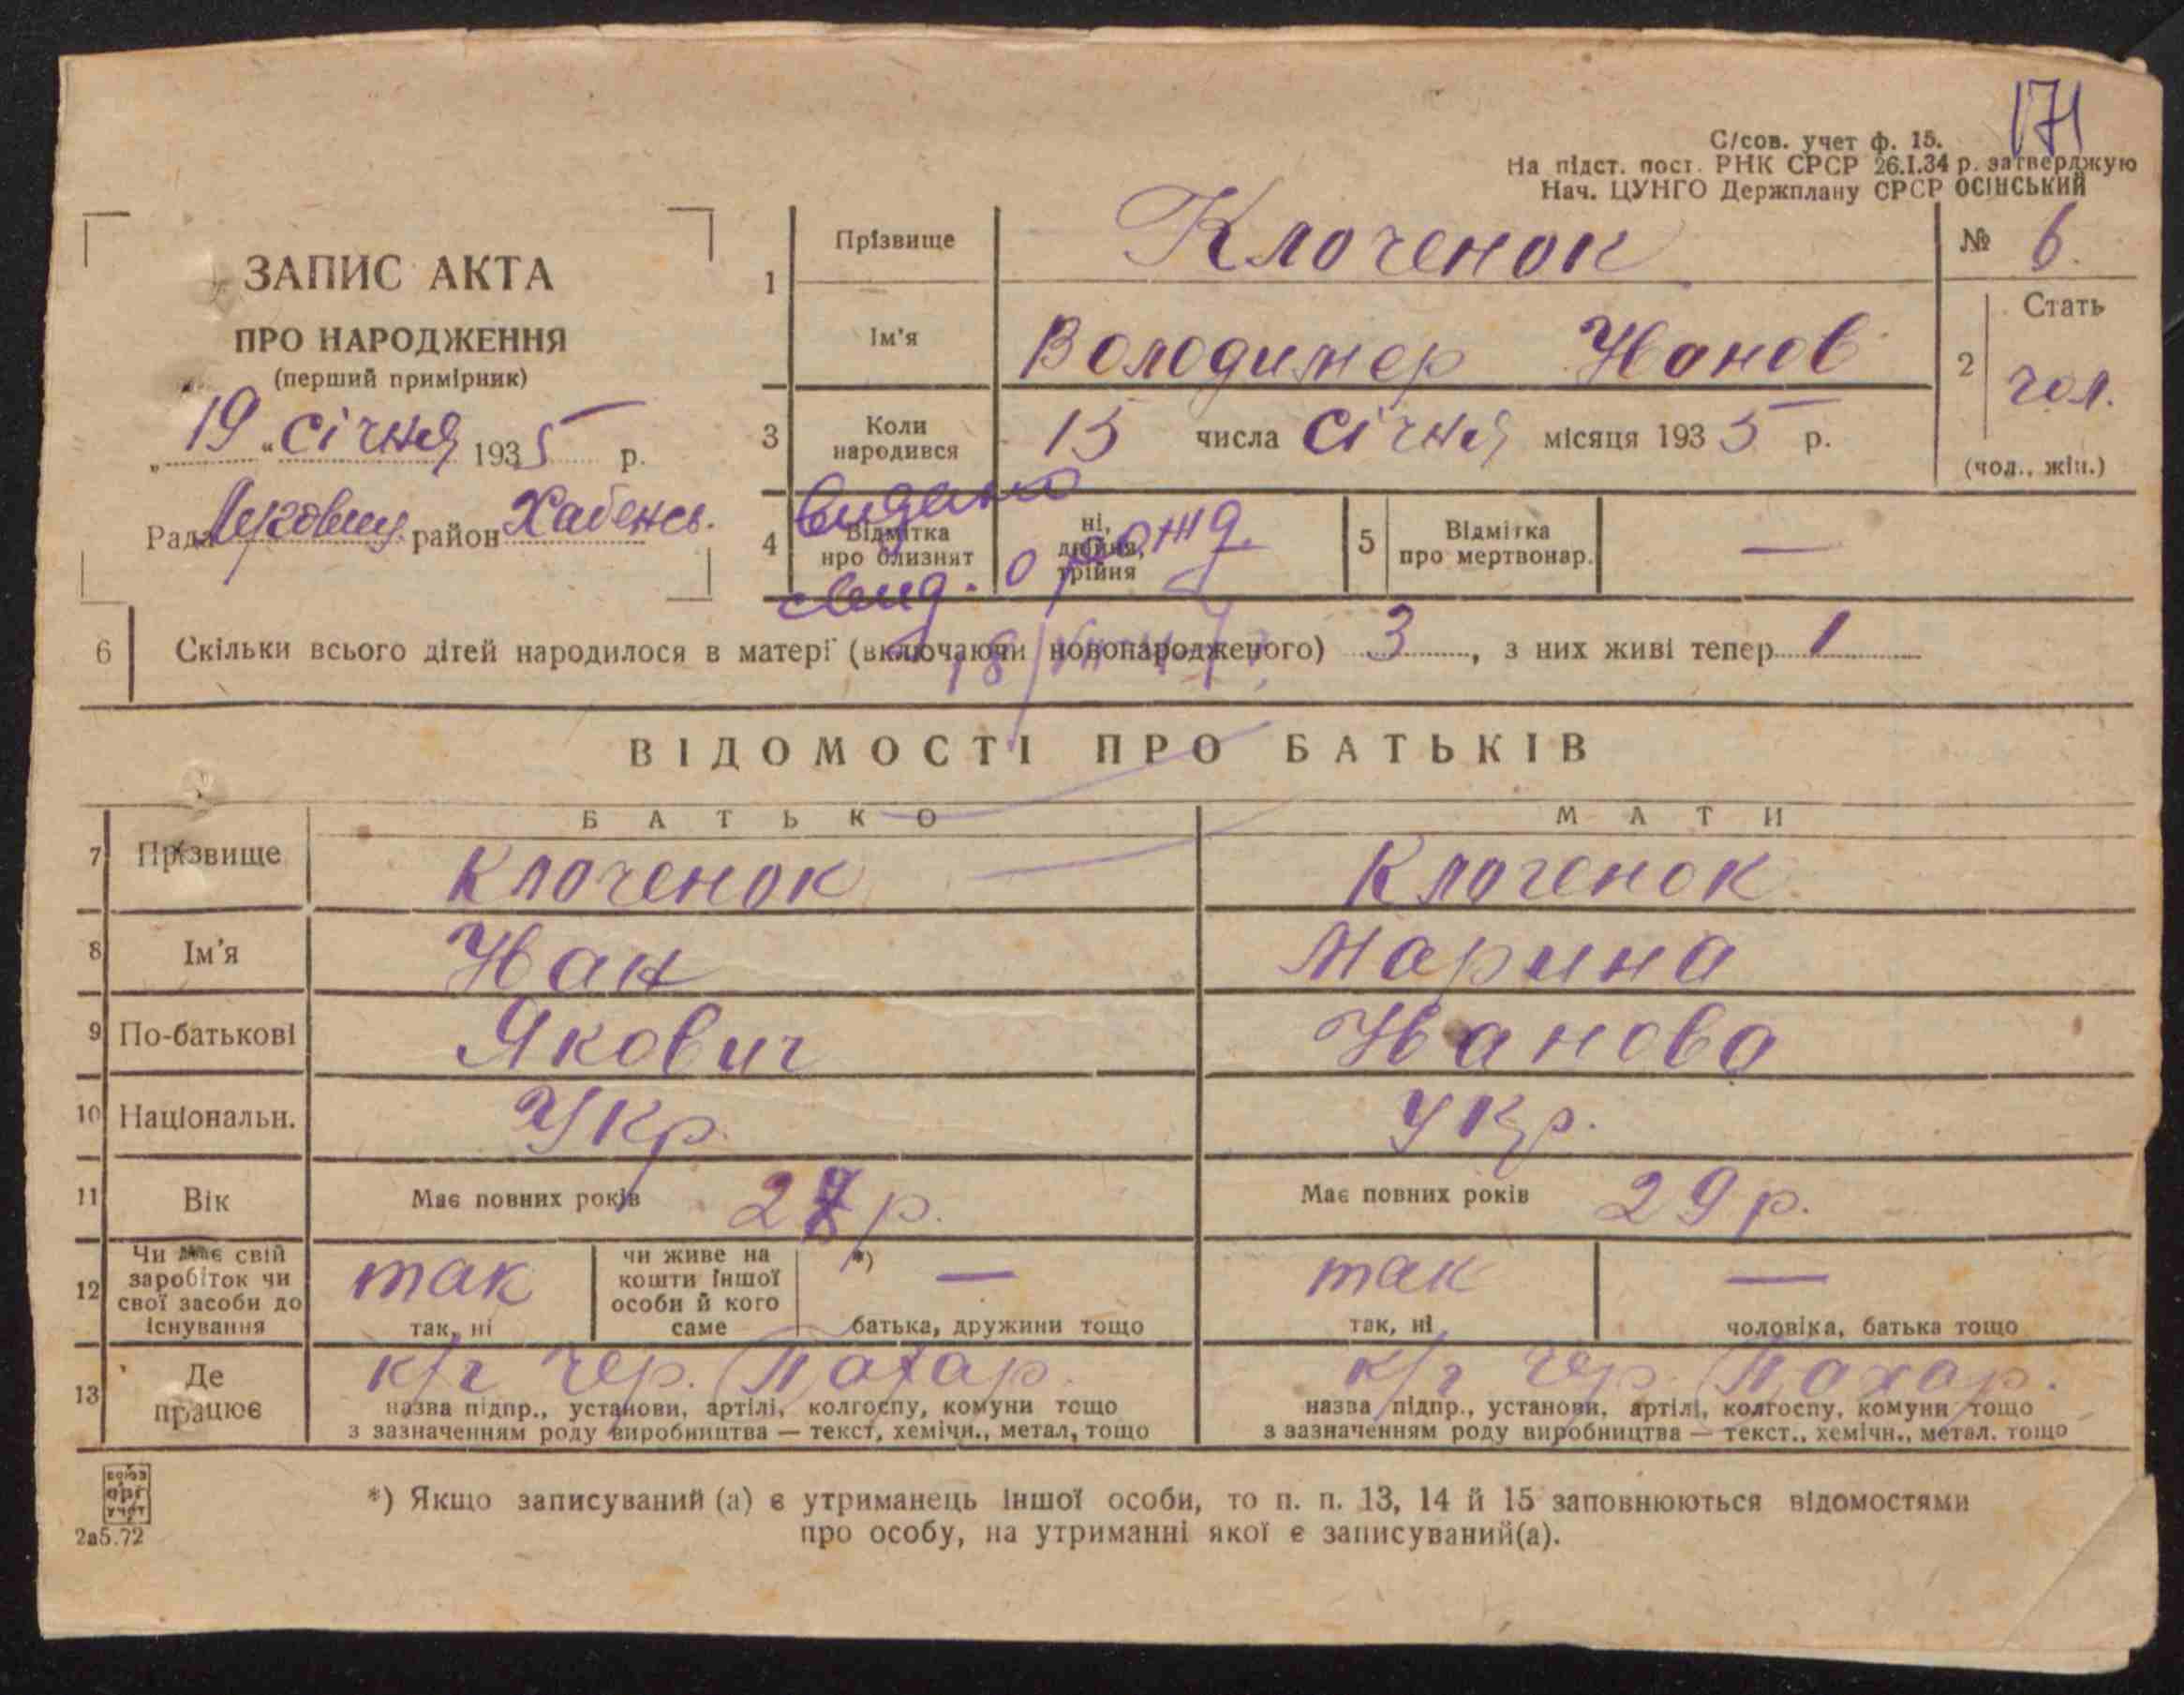 171
С/сов. учет ф. 15.
На підст. пост. РНК СРСР 26.I.34 р. затверджую
Нач. ЦУНГО Держплану СРСР ОСІНСЬКИЙ
ЗАПИС АКТА
ПРО НАРОДЖЕННЯ
(перший примірник)
„19“ січня 1935 р.
Рада район Хабенсь.
1 Прізвище Клоченок № 6.
Ім'я Володимер Иванов
2 Стать чол.
(чол., жін.)
3 Коли народився 15 числа січня місяця 1935 р.
видано
свид. о рожд.
4 Відмітка про близнят ні, двійня, трійня
5 Відмітка про мертвонар. —
6 Скільки всього дітей народилося в матері (включаючи новопародженого) 3, з них живі тепер 1
ВІДОМОСТІ ПРО БАТЬКІВ
БАТЬКО МАТИ
7 Прізвище Клоченок Клоченок
8 Ім'я Иван Марина
9 По-батькові Якович Иванова
10 Національн. Укр. Укр.
11 Вік Має повних років р. Має повних років 29 р.
12 Чи має свій заробіток чи свої засоби до існування так чи живе на кошти іншої особи й кого саме *) — так —
так, ні батька, дружини тощо так, ні чоловіка, батька тощо
13 Де працює к/г чер. Пахар. к/г чер. Пахар.
назва підпр., установи, артілі, колгоспу, комуни тощо назва підпр., установи, артілі, колгоспу, комуни тощо
з зазначенням роду виробництва — текст, хемічн., метал, тощо з зазначенням роду виробництва — текст., хемічн., метал. тощо
союз
орг
учет
2а5.72
*) Якщо записуваний (а) є утриманець іншої особи, то п. п. 13, 14 й 15 заповнюються відомостями
про особу, на утриманні якої є записуваний(а).